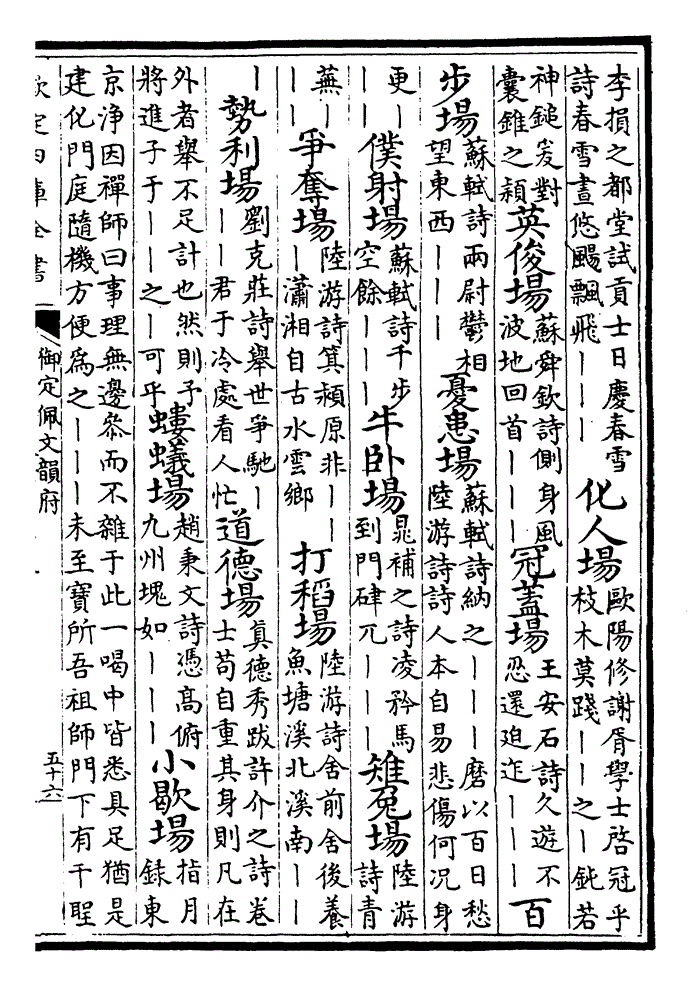 李損之都堂試貢士日慶春雪
詩春雪晝悠颺飄飛｜｜｜
化人場
歐陽修謝胥學士啓冠乎
枝木莫踐｜｜之｜鈍若
神鎚爰對
囊錐之潁
英俊場
蘇舜欽詩側身風
波地回首｜｜｜
冠蓋場
王安石詩久遊不
忍還迫迮｜｜｜
百
步場
蘇軾詩兩尉鬱相
望東西｜｜｜
憂患場
蘇軾詩納之｜｜｜磨以百日愁
陸游詩詩人本自易悲傷何況身
更｜
｜｜
僕射場
蘇軾詩千步
空餘｜｜｜
牛卧場
晁補之詩凌矜馬
到門硉兀｜｜｜
雉兔場
陸游
詩青
蕪｜
｜｜
爭奪場
陸游詩箕潁原非｜｜
｜瀟湘自古水雲鄉
打稻場
陸游詩舍前舍後養
魚塘溪北溪南｜｜
｜
勢利場
劉克莊詩舉世爭馳｜
｜｜君于冷處看人忙
道德場
真德秀跋許介之詩卷
士苟自重其身則凡在
外者舉不足計也然則予
將進子于｜｜｜之｜可乎
螻蟻場
趙秉文詩憑高俯
九州塊如｜｜｜
小歇場
指月
錄東
京淨因禪師曰事理無邊叅而不雜于此一喝中皆悉具足猶是
建化門庭隨機方便爲之｜｜｜未至寶所吾祖師門下有千聖
欽定四庫全書
御定佩文韻府
五十六